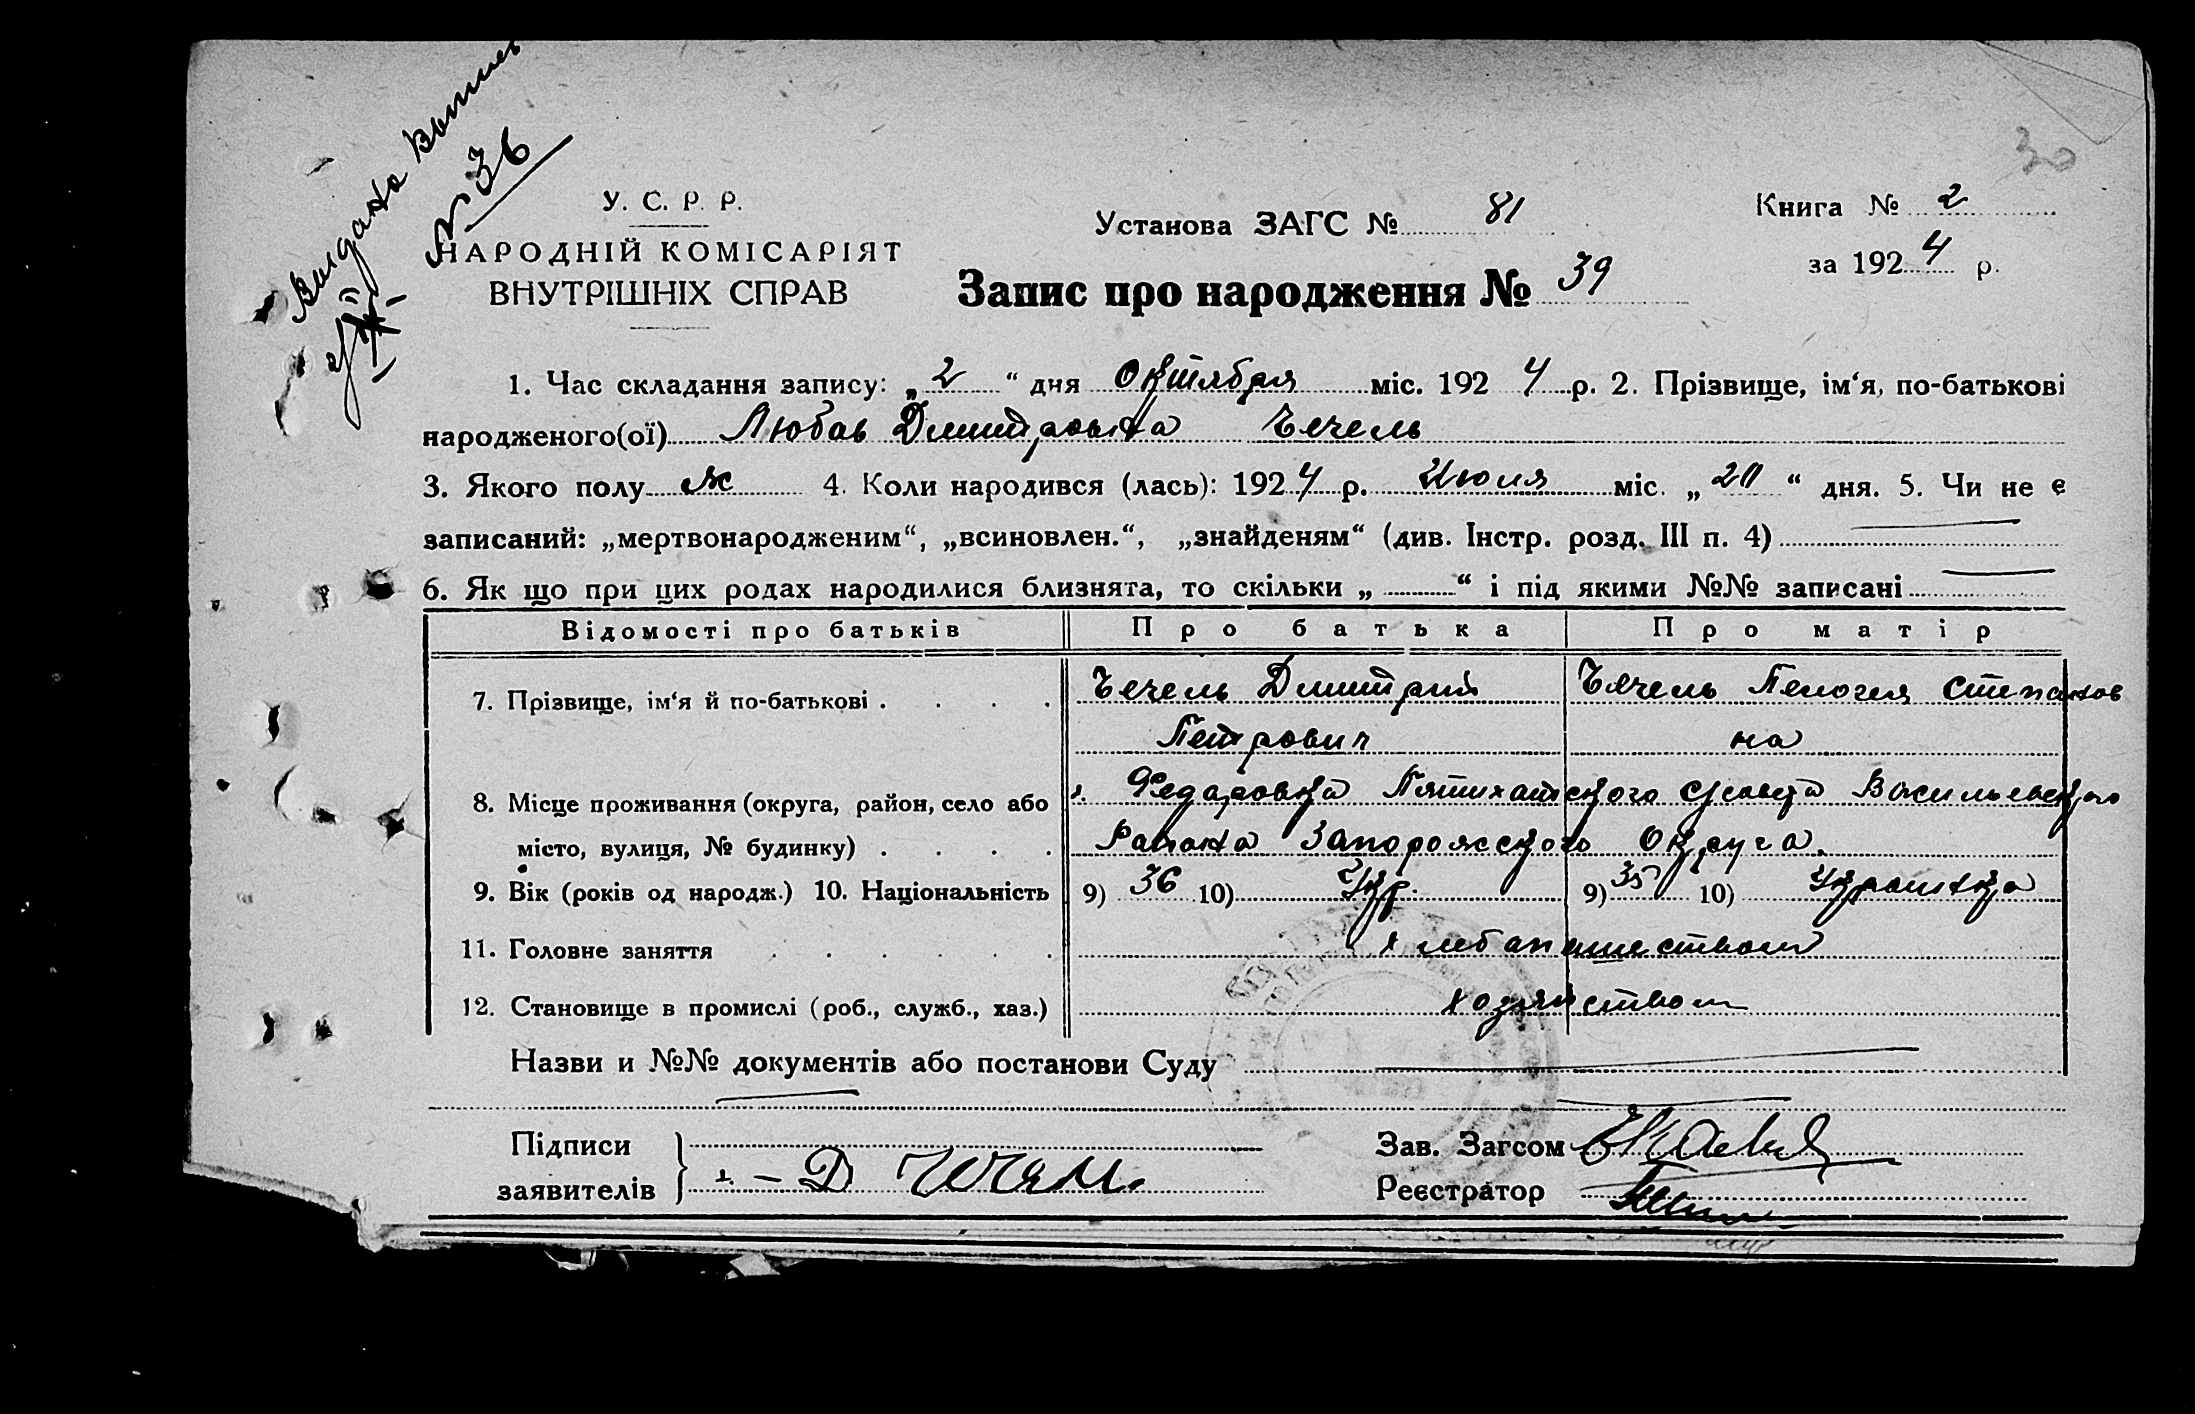 Выдана Выпись
№ 36
30
У. С. Р. Р.
НАРОДНІЙ КОМІСАРІЯТ
ВНУТРІШНІХ СПРАВ
Установа ЗАГС № 81
Книга № 2
за 1924 р.
Запис про народження № 39
1. Час складання запису: „2“ дня Октября міс. 1924 р. 2. Прізвище, ім‘я, по-батькові
народженого(ої) Любовь Дмитровна Бечель
3. Якого полу ж 4. Коли народився (лась): 1924 р. Июля міс. „20“ дня. 5. Чи не є
записаний: „мертвонародженим“, „всиновлен.“, „знайденям“ (див. Інстр. розд. III п. 4)
6. Як що при цих родах народилися близнята, то скільки „ “ і під якими №№ записані
Відомості про батьків Про батька Про матір
7. Прізвище, ім‘я й по-батькові . . . . Бечель Дмитрий Бечель Пелогея Степанов
Петрович на
8. Місце проживання (округа, район, село або х. Федоровка Пятихатского с/совета Васильевского
місто, вулиця, № будинку) . . . . Района Запорожского Округа.
9. Вік (років од народж.) 10. Національність 9) 36 10) Укр. 9) 35 10) Украинка
11. Головне заняття . . . . . . хлебопашеством
12. Становище в промислі (роб., служб., хаз.) хозяйством
Назви и №№ документів або постанови Суду
Підписи
заявителів
Зав. Загсом
Реєстратор